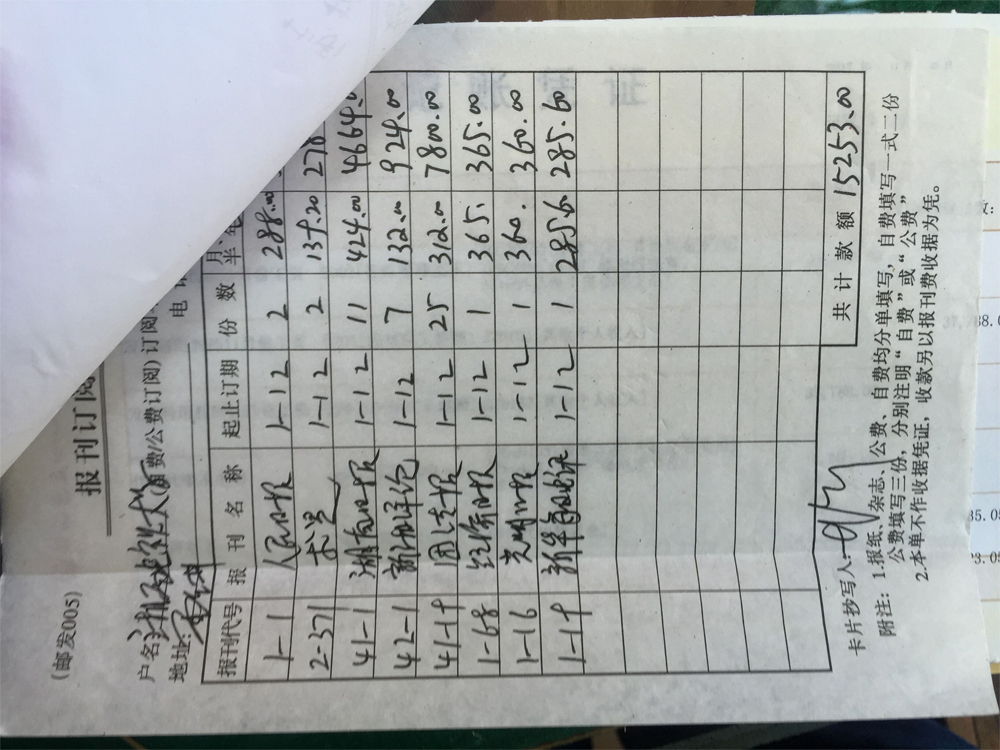 (邮发005)
报刊订阅
户名: (自费/公费订阅) 订阅
地址: 电
报刊代号 报刊名称 起止订期 份数 月、
1-1 人民日报 1-12 2 288.00
2-371 求是 1-12 2 139.20 278
41-1 湖南日报 1-12 11 424.00 4664.0
42-1 1-12 7 132.00 924.00
41-19 1-12 25 312.00 7800.00
1-68 经济日报 1-12 1 365. 365.00
1-16 光明日报 1-12 1 360. 360.00
1-19 新华每日电讯 1-12 1 285.6 285.60
共计款额 15253.00
卡片抄写人:
附注: 1.报纸、杂志、公费、自费均分单填写,自费填写一式二份
公费填写三份,分别注明“自费”或“公费”
2.本单不作收据凭证,收款另以报刊费收据为凭。